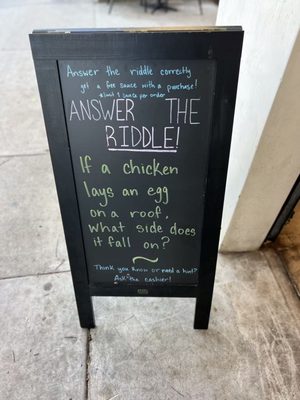 Answer the riddle correctly
get a free sauce with a purchase!
*limit 1 sauce per order
ANSWER THE
RIDDLE!
If a chicken
lays an egg
on a roof,
what side does
it fall on?
Think you know or need a hint?
Ask the cashier!